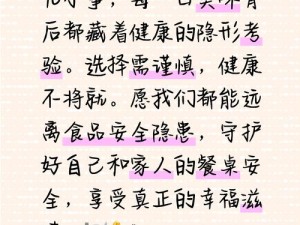 后都藏着健康的隐形考
验。选择需谨慎，健康
不将就。愿我们都能远
离食品安全隐患，守护
好自己和家人的餐桌安
全，享受真正的幸福滋